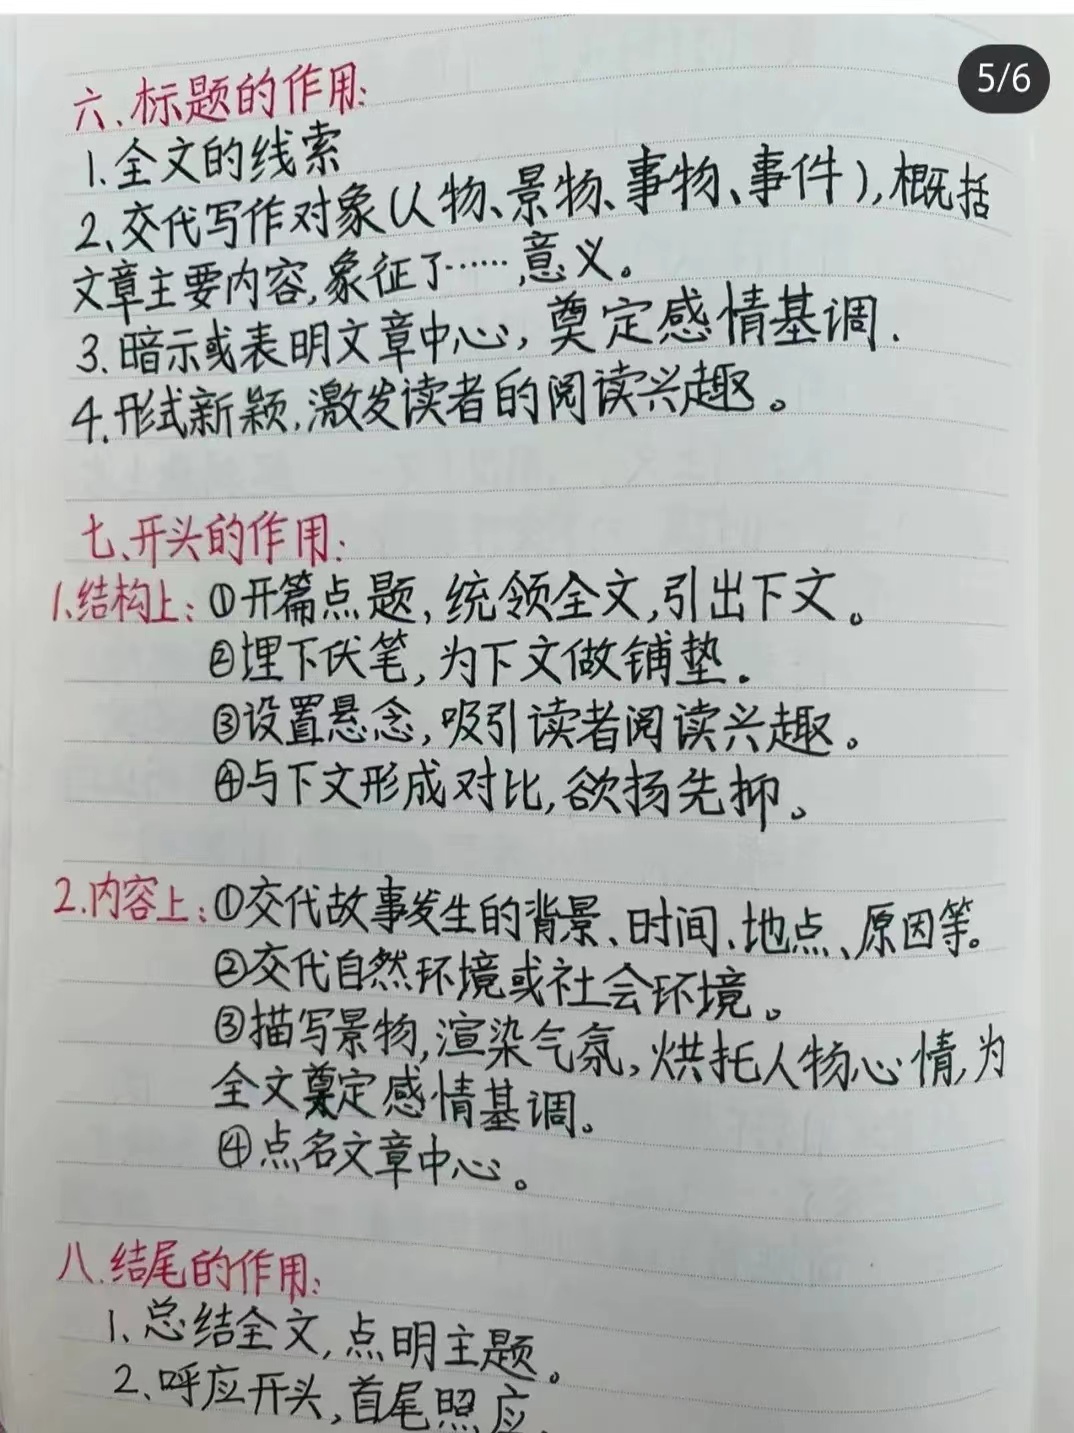 5/6
六、标题的作用:
1.全文的线索
2、交代写作对象(人物、景物、事物、事件),概括
文章主要内容,象征了……,意义。
3.暗示或表明文章中心,奠定感情基调.
4.形式新颖,激发读者的阅读兴趣。
七、开头的作用:
1.结构上:①开篇点题,统领全文,引出下文。
②埋下伏笔,为下文做铺垫.
③设置悬念,吸引读者阅读兴趣。
④与下文形成对比,欲扬先抑。
2.内容上:①交代故事发生的背景、时间、地点、原因等。
②交代自然环境或社会环境。
③描写景物,渲染气氛,烘托人物心情,为
全文奠定感情基调。
④点名文章中心。
八.结尾的作用:
1、总结全文,点明主题。
2、呼应开头,首尾照应.